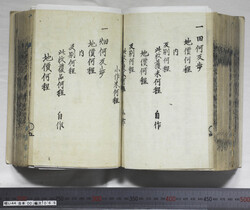 一田何反歩
地價何程
内
反別何程
此收穫米何程
地價何程
自作
反別何程
小作米何程
一畑何反歩
地價何程
内
反別何程
此收穫品何程
地價何程
自作